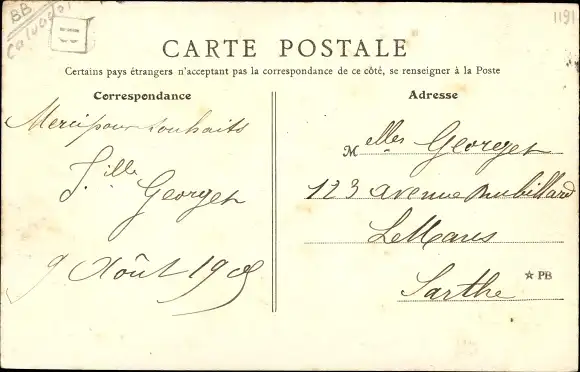 BB
Calvados
1191
CARTE POSTALE
Certains pays étrangers n'acceptant pas la correspondance de ce côté, se renseigner à la Poste
Correspondance
Merci pour souhaits
Georget
9 Août 190
Adresse
Melles Georget
123 avenue Bubillard
LeMans
Sarthe
★ PB